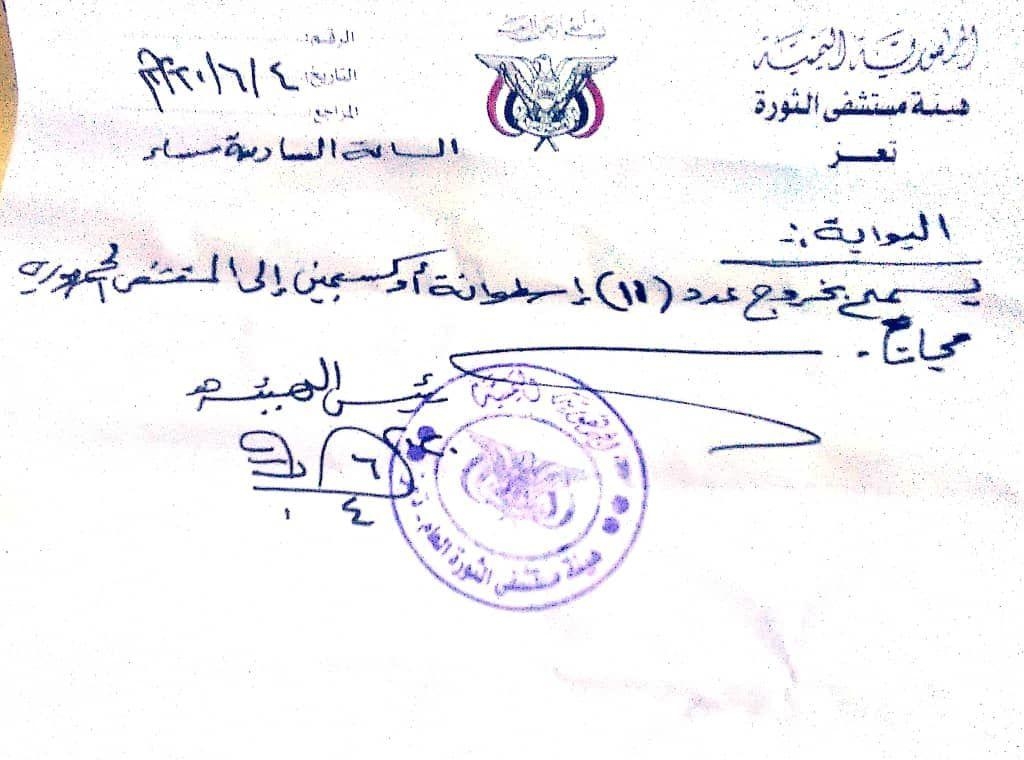 بسم الله الرحمن الرحيم
الجمهورية اليمنية
هيئة مستشفى الثورة
تعز
الرقم:
التاريخ: ٢٠٢٠/٦/٤م
المرجع:
الساعة السادسة مساء
البوابة:-
يسمح بخروج عدد (١١) إسطوانة أوكسجين إلى المستشفى الجمهوري
مجاناً.
رئيس الهيئة
٦
٤
الجمهورية اليمنية
هيئة مستشفى الثورة العام - تعز